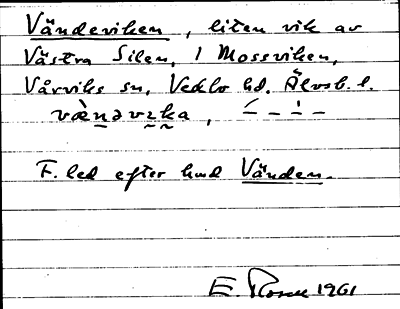 Vändeviken, liten vik av
Västra Silen, i Mossviken,
Vårviks sn, Vedbo hd. Älvsb. l.
væ̀nəvɪka,
F. led efter hmd Vänden.
E. Rosen 1961